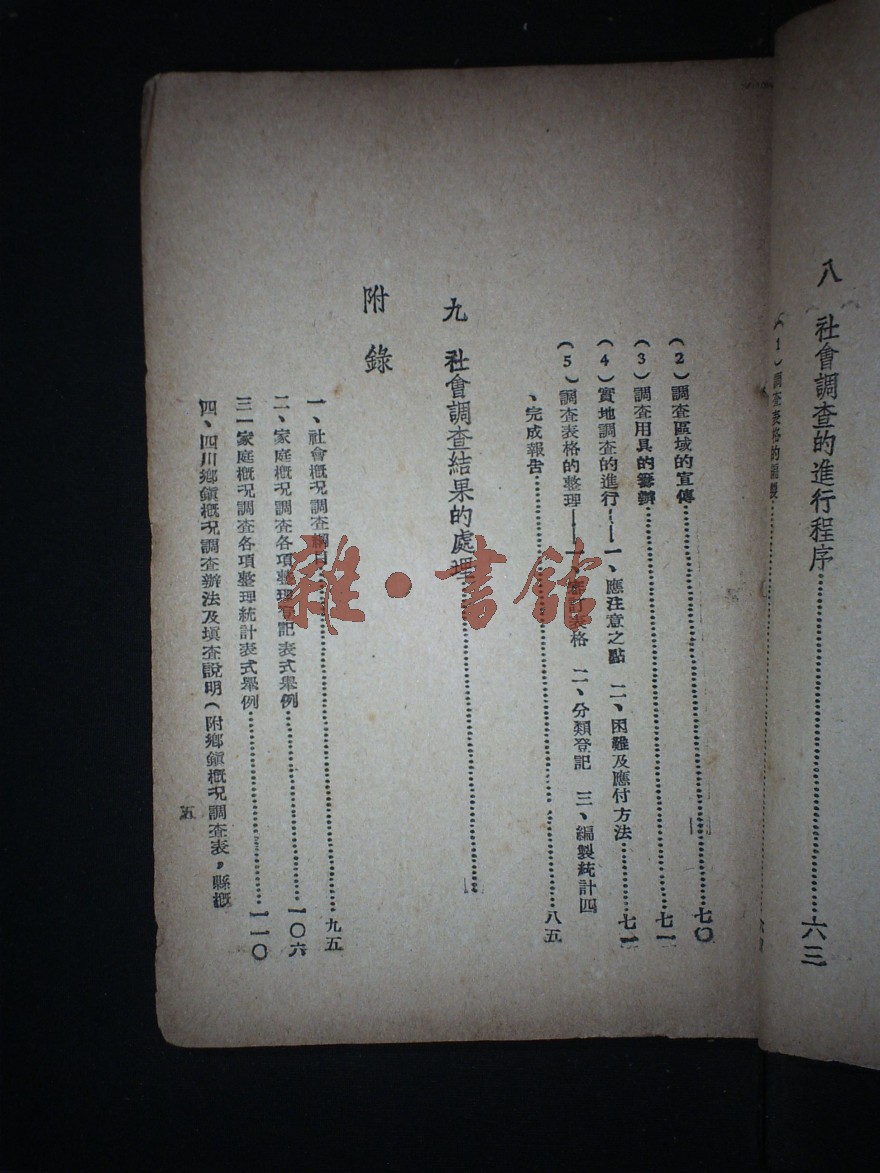 八 社會調查的進行程序……六三
(1)調查表格的編製……
(2)調查區域的宣傳……七〇
(3)調查用具的籌辦……七一
(4)實地調查的進行——一、應注意之點 二、困難及應付方法……七一
(5)調查表格的整理——一、 表格 二、分類登記 三、編製統計四
、完成報告……八五
九 社會調查結果的處理……
附錄
一、社會概況調查綱目……九五
二、家庭概況調查各項整理登記表式舉例……一〇六
三一家庭概況調查各項整理統計表式舉例……一一〇
四、四川鄉鎮概況調查辦法及填查說明(附鄉鎮概況調查表,縣概
五
雜·書館